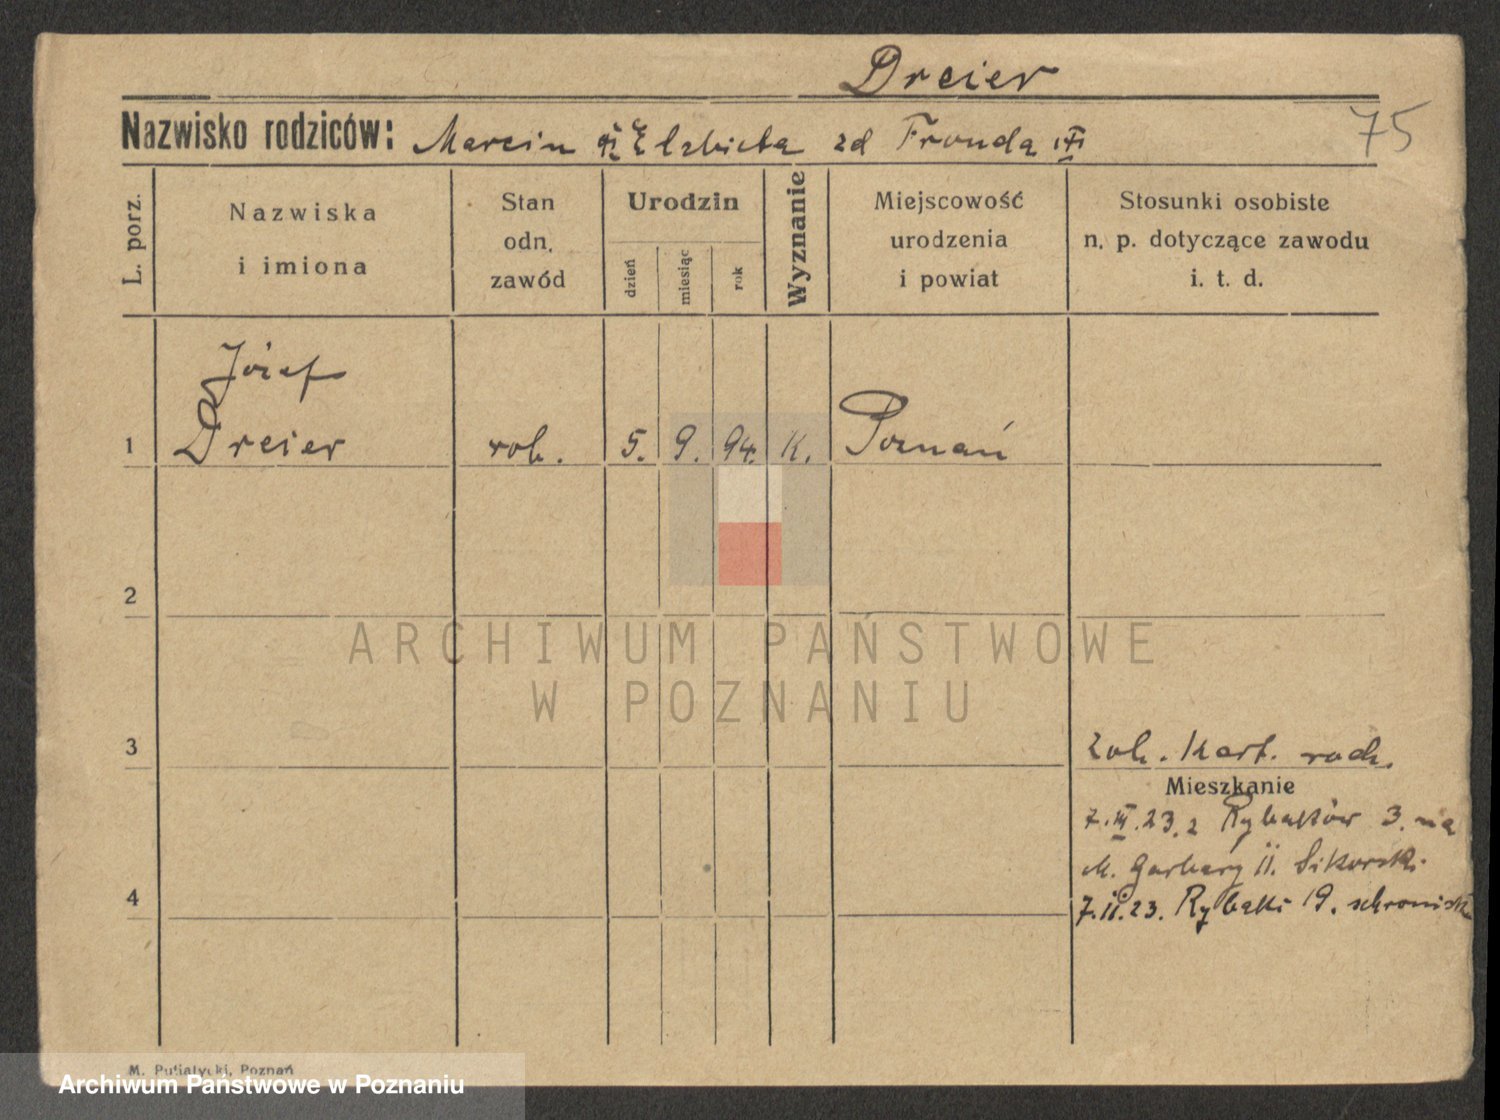 Dreier
75
Nazwisko rodziców: Marcin Elzbieta zd Fronda
L. porz.
Nazwiska
i imiona
Stan
odn.
zawód
Urodzin
dzień
miesiąc
rok
Wyznanie
Miejscowość
urodzenia
i powiat
Stosunki osobiste
n. p. dotyczące zawodu
i. t. d.
Józef
1 Dreier rob. 5. 9. 94. K. Poznań
2
ARCHIWUM PAŃSTWOWE
W POZNANIU
3
zob. Kart. rodz.
Mieszkanie
7.III.23. z Rybaków 3. na
M. Garbary 11. Sikorski.
4
7.II.23. Rybaki 19. schronisk
M. Putiatycki, Poznań
Archiwum Państwowe w Poznaniu